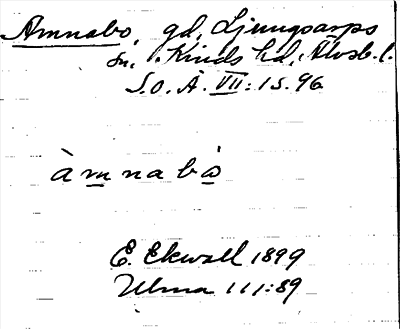 Amnabo, gd, Ljungsarps
sn, Kinds hd, Älvsb. l.
S.O.Ä. VII:1 S. 96
àmnabò
E. Ekwall 1899
Ulma 111:89